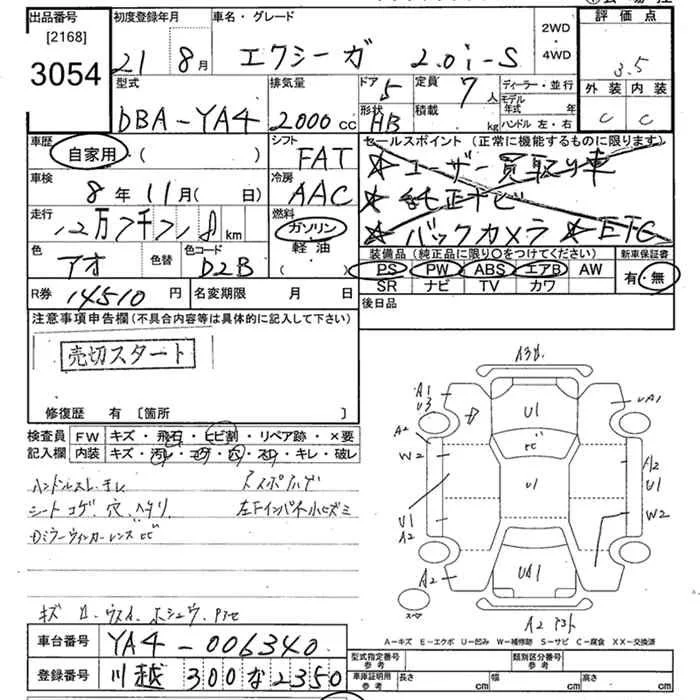 出品番号
[2168]
3054
初度登録年月
21 8月
車名・グレード
エクシーガ 2.0i-S
2WD
4WD
評価点
3.5
外装 内装
C C
型式
DBA-YA4
排気量
2000 CC
ドア 5
形状 HB
定員 7 人
積載 kg
ディーラー・並行
モデル年式 年
ハンドル 左・右
車歴
自家用 ( )
車検
8年 11月( 日)
走行
12万 7千 7 8 km
色 アオ
色替
色コード D2B
シフト
FAT
冷房
AAC
燃料
ガソリン
軽油
( )
セールスポイント (正常に機能するものに限ります)
★ユーザー買取り車
★純正ナビ
★バックカメラ ★ETC
装備品 (純正品に限り〇をつけてください)
PS PW ABS エアB AW
SR ナビ TV カワ
新車保証書
有・無
R券 14510 円
名変期限 月 日
後日品
注意事項申告欄(不具合内容等は具体的に記入して下さい)
売切スタート
修復歴 有 [箇所 ]
検査員 記入欄
FW キズ・飛石・ヒビ割・リペア跡・×要
内装 キズ・汚レ・コゲ・穴・スレ・キレ・破レ
ハンドルスレ、キレ
シート コゲ、穴、ヘタリ
Dミラーウィンカーレンズ ヒビ
左下インパネ小ヒズミ
A1
U3
A2
W2
U1
A2
A2
U1
ヒビ
U1
UA1
UA1
A2
U1
W2
スペア
A-キズ E-エクボ U-凹み W-補修跡 S-サビ C-腐食 XX-交換済
車台番号 YA4-006340
登録番号 川越 300 な 2350
型式指定番号 参考
類別区分番号 参考
車庫証明用 参考 長さ cm 幅 cm 高さ cm